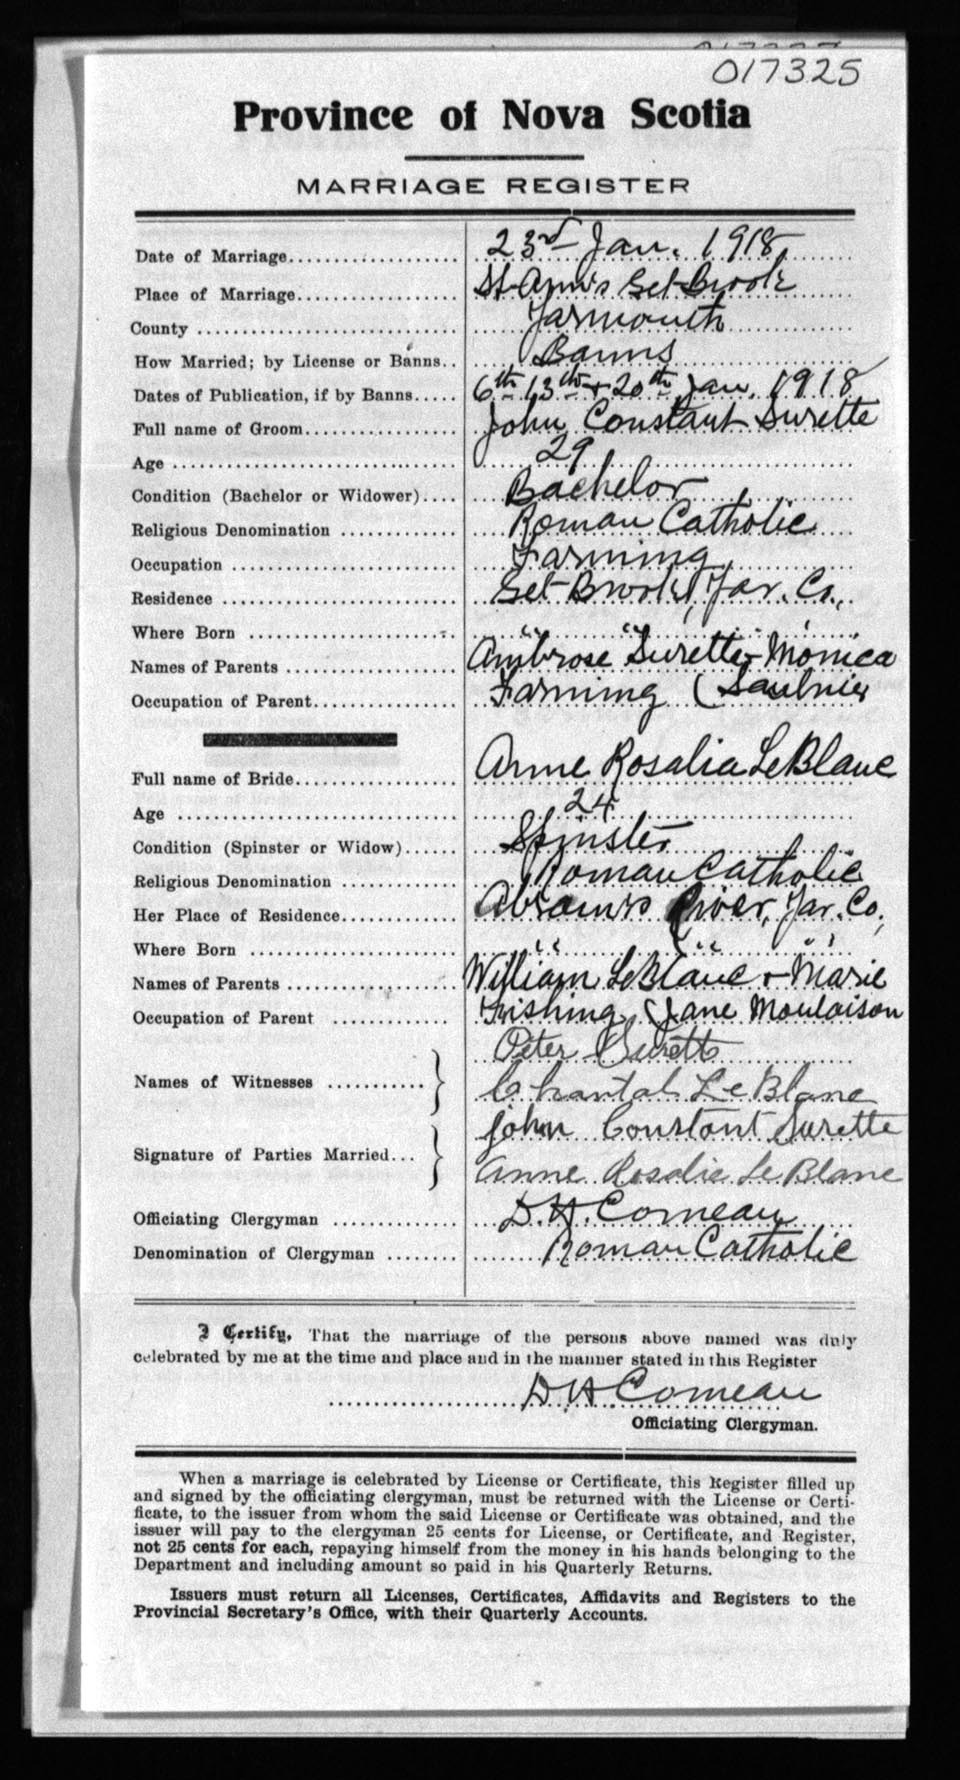 017325
Province of Nova Scotia
MARRIAGE REGISTER
Date of Marriage 23rd Jan. 1918
Place of Marriage St Ann's Eel Brook
County Yarmouth
How Married; by License or Banns Banns
Dates of Publication, if by Banns 6th 13th & 20th Jan. 1918
Full name of Groom John Constant Surette
Age 29
Condition (Bachelor or Widower) Bachelor
Religious Denomination Roman Catholic
Occupation Farming
Residence Eel Brook, Yar. Co.,
Where Born " " "
Names of Parents Ambrose Surette & Monica
Occupation of Parent Farming (Saulnier
Full name of Bride Anne Rosalia LeBlanc
Age 24
Condition (Spinster or Widow) Spinster
Religious Denomination Roman Catholic
Her Place of Residence Abram's River, Yar. Co.,
Where Born " " "
Names of Parents William LeBlanc & Marie
Occupation of Parent Fishing (Jane Moulaison
Peter Surette
Names of Witnesses Chantal LeBlanc
John Constant Surette
Signature of Parties Married Anne Rosalie LeBlanc
Officiating Clergyman D.H. Comeau
Denomination of Clergyman Roman Catholic
I Certify, That the marriage of the persons above named was duly
celebrated by me at the time and place and in the manner stated in this Register
D H Comeau
Officiating Clergyman.
When a marriage is celebrated by License or Certificate, this Register filled up
and signed by the officiating clergyman, must be returned with the License or Certi-
ficate, to the issuer from whom the said License or Certificate was obtained, and the
issuer will pay to the clergyman 25 cents for License, or Certificate, and Register,
not 25 cents for each, repaying himself from the money in his hands belonging to the
Department and including amount so paid in his Quarterly Returns.
Issuers must return all Licenses, Certificates, Affidavits and Registers to the
Provincial Secretary's Office, with their Quarterly Accounts.